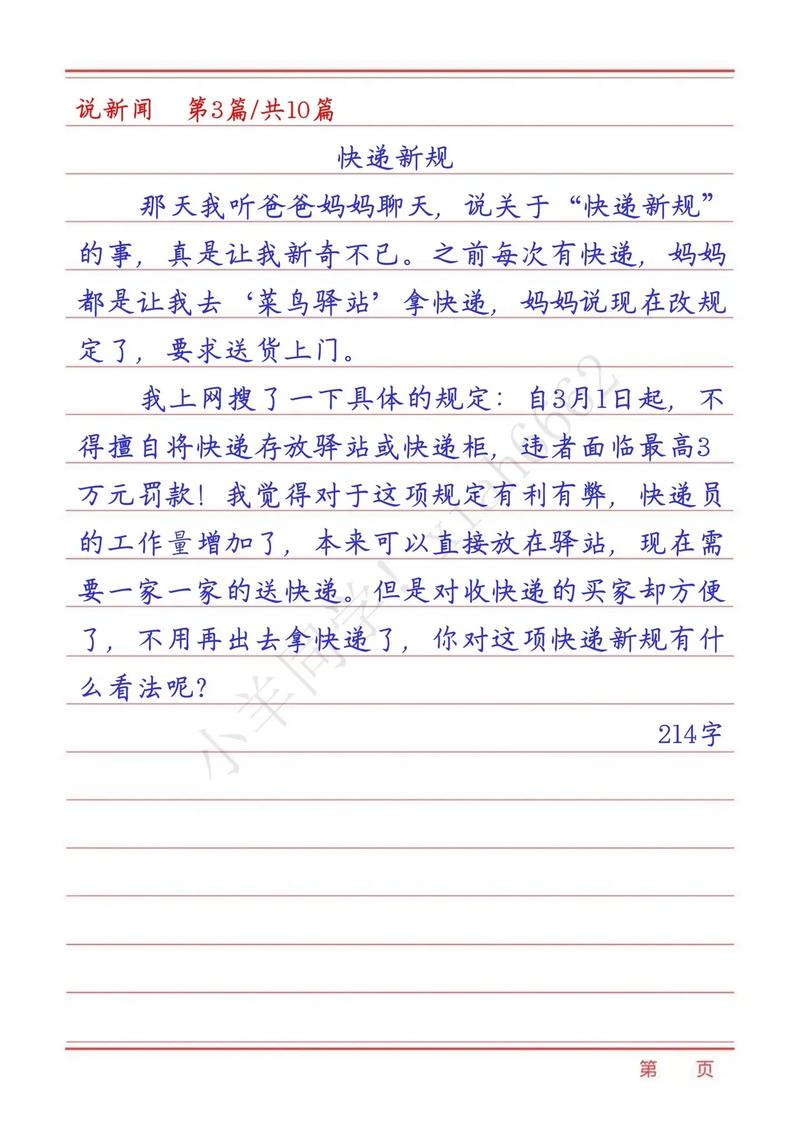 说新闻 第3篇/共10篇
快递新规
那天我听爸爸妈妈聊天，说关于“快递新规”
的事，真是让我新奇不已。之前每次有快递，妈妈
都是让我去‘菜鸟驿站’拿快递，妈妈说现在改规
定了，要求送货上门。
我上网搜了一下具体的规定：自3月1日起，不
得擅自将快递存放驿站或快递柜，违者面临最高3
万元罚款！我觉得对于这项规定有利有弊，快递员
的工作量增加了，本来可以直接放在驿站，现在需
要一家一家的送快递。但是对收快递的买家却方便
了，不用再出去拿快递了，你对这项快递新规有什
么看法呢？
214字
小羊同学！xiah6662
第 页